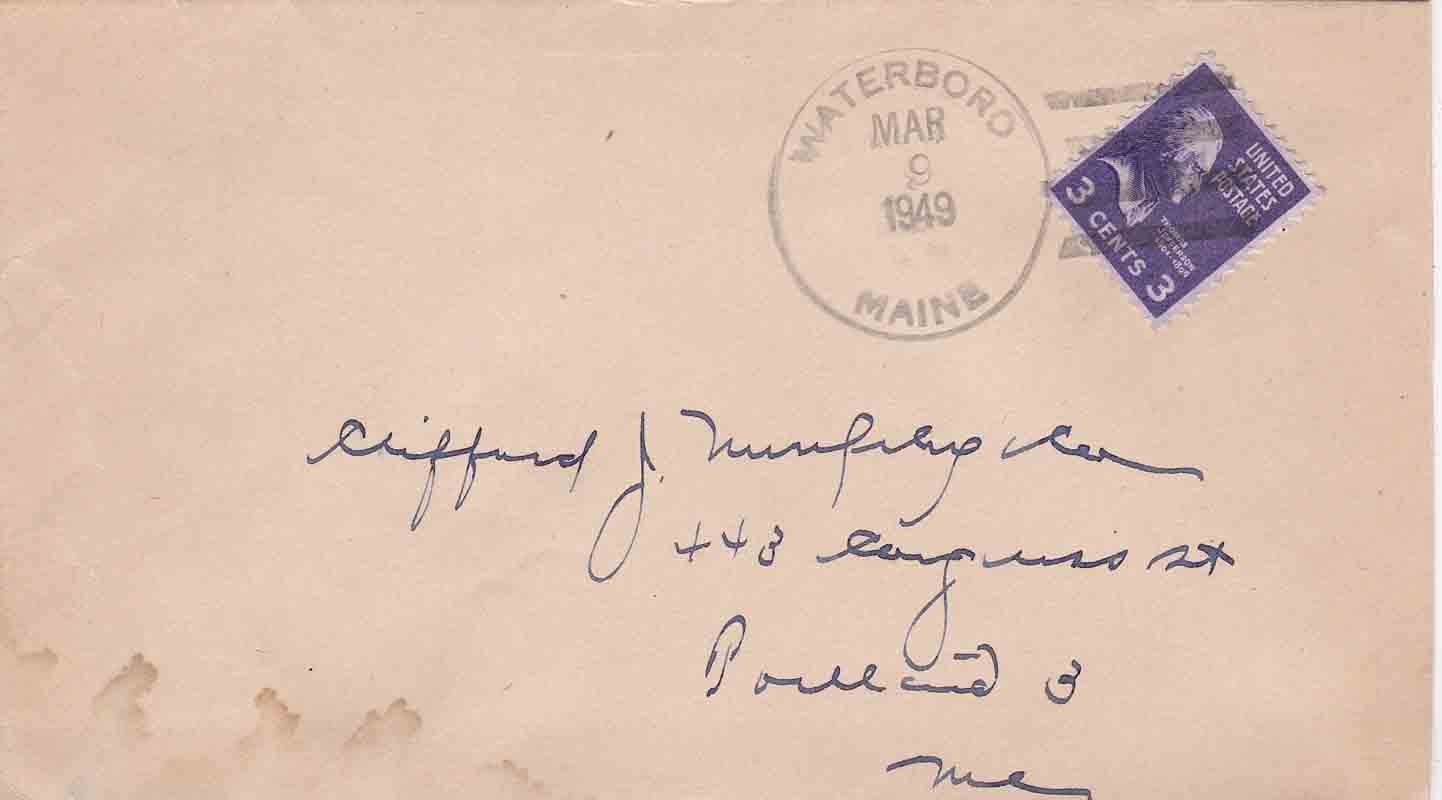 WATERBORO
MAR
9
1949
MAINE
UNITED
STATES
POSTAGE
THOMAS
JEFFERSON
1801-1809
3 CENTS 3
Clifford J. Murphy Co
443 Congress St
Portland 3
Me